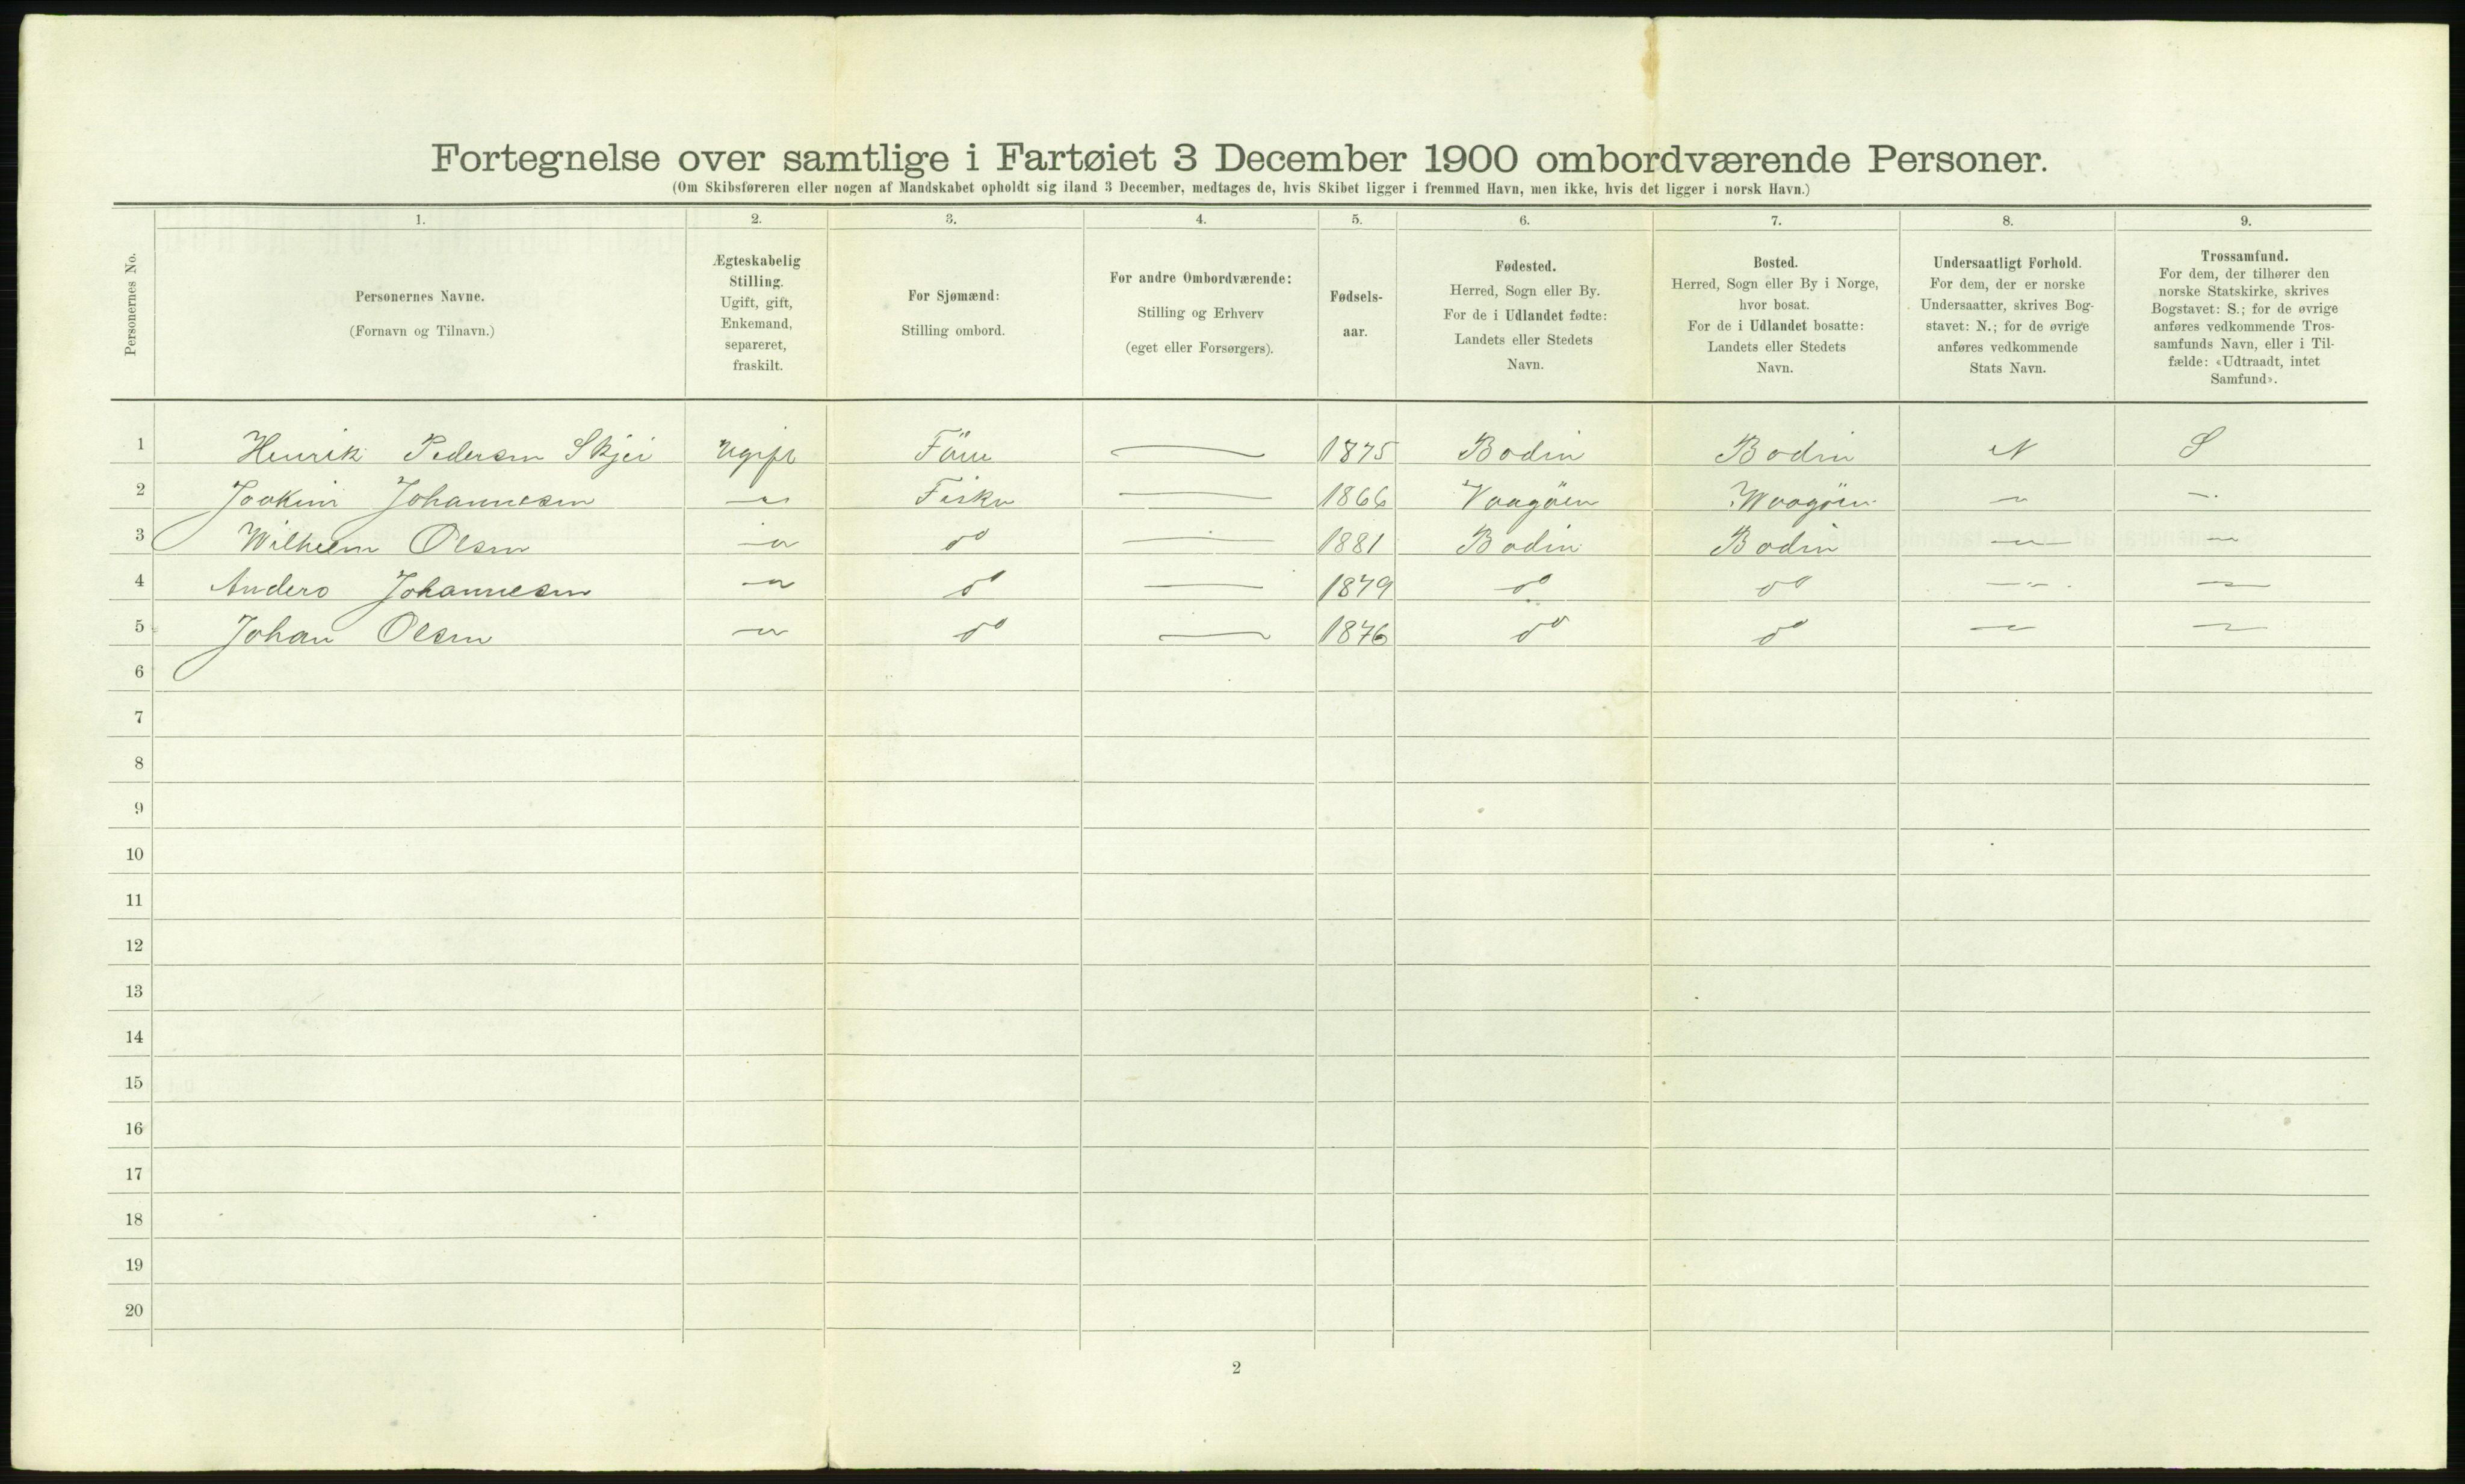 Fortegnelse over samtlige i Fartøiet 3 December 1900 ombordværende Personer.
(Om Skibsføreren eller nogen af Mandskabet opholdt sig iland 3 December, medtages de, hvis Skibet ligger i fremmed Havn, men ikke, hvis det ligger i norsk Havn.)
Personernes No.
1. 2. 3. 4. 5. 6. 7. 8. 9.
Personernes Navne.
(Fornavn og Tilnavn.)
Ægteskabelig
Stilling.
Ugift, gift,
Enkemand,
separeret,
fraskilt.
For Sjømænd:
Stilling ombord.
For andre Ombordværende:
Stilling og Erhverv
(eget eller Forsørgers).
Fødsels-
aar.
Fødested.
Herred, Sogn eller By.
For de i Udlandet fødte:
Landets eller Stedets
Navn.
Bosted.
Herred, Sogn eller By i Norge,
hvor bosat.
For de i Udlandet bosatte:
Landets eller Stedets
Navn.
Undersaatligt Forhold.
For dem, der er norske
Undersaatter, skrives Bog-
stavet: N.; for de øvrige
anføres vedkommende
Stats Navn.
Trossamfund.
For dem, der tilhører den
norske Statskirke, skrives
Bogstavet: S.; for de øvrige
anføres vedkommende Tros-
samfunds Navn, eller i Til-
fælde: «Udtraadt, intet
Samfund».
1 Henrik Pedersen Skjei Ugift — 1875 Bodin Bodin N S
2 Joakim Johannesen — Fisker — 1866 Vaagöen Waagöen — —
3 Wilhelm Olsen — do — 1881 Bodin Bodin — —
4 Anders Johannesen — do — 1879 do do — —
5 Johan Olsen — do — 1876 do do — —
6
7
8
9
10
11
12
13
14
15
16
17
18
19
20
2